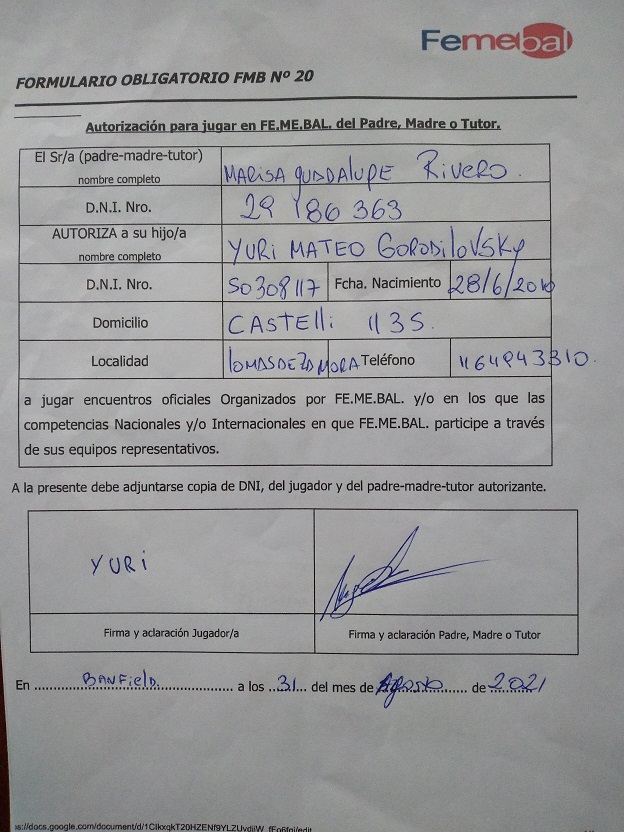 Femebal
FORMULARIO OBLIGATORIO FMB Nº 20
Autorización para jugar en FE.ME.BAL. del Padre, Madre o Tutor.
El Sr/a (padre-madre-tutor) MARISA GUADALUPE RIVERO.
nombre completo
D.N.I. Nro. 29 186 363
AUTORIZA a su hijo/a YURI MATEO GORODILOVSKY
nombre completo
D.N.I. Nro. 50308117 Fcha. Nacimiento 28/6/2010
Domicilio CASTELLI 1135.
Localidad LOMAS DE ZAMORA Teléfono
a jugar encuentros oficiales Organizados por FE.ME.BAL. y/o en los que las
competencias Nacionales y/o Internacionales en que FE.ME.BAL. participe a través
de sus equipos representativos.
A la presente debe adjuntarse copia de DNI, del jugador y del padre-madre-tutor autorizante.
YURI
Firma y aclaración Jugador/a Firma y aclaración Padre, Madre o Tutor
En BANFIELD. a los 31 del mes de Agosto de 2021